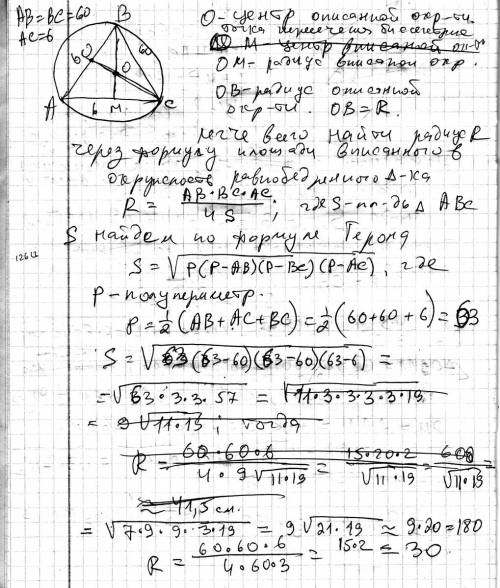 AB=BC=60
AC=6
B
60
60
O
O
A
6
M
C
O - центр описанной окр-ти.
точка пересечения биссектрис
M - центр вписаной оп-м
OM - радиус вписаной окр.
OB - радиус описанной
окр-ти. OB = R.
легче всего найти радиус R
через формулу площади вписанного в
окружность равнобедренного Δ-ка
R = AB·BC·AC / 4S ; где S - пл-дь Δ ABC
S найдем по формуле Герона
S = √P(P-AB)(P-BC)(P-AC), где
P - полупериметр.
P = 1/2 (AB + AC + BC) = 1/2 (60 + 60 + 6) = 63
S = √63(63-60)(63-60)(63-6) =
= √63·3·3·57 = √11·3·3·3·3·19 =
= 9√11·19 ; тогда
R = 60·60·6 / 4·9√11·19 = 15·20·2 / √11·19 = 600 / √11·19 =
≈ 41,5 см.
= √7·9·9·3·19 = 9√21·19 ≈ 9·20 = 180
R = 60·60·6 / 4·60·3 = 15·2 = 30